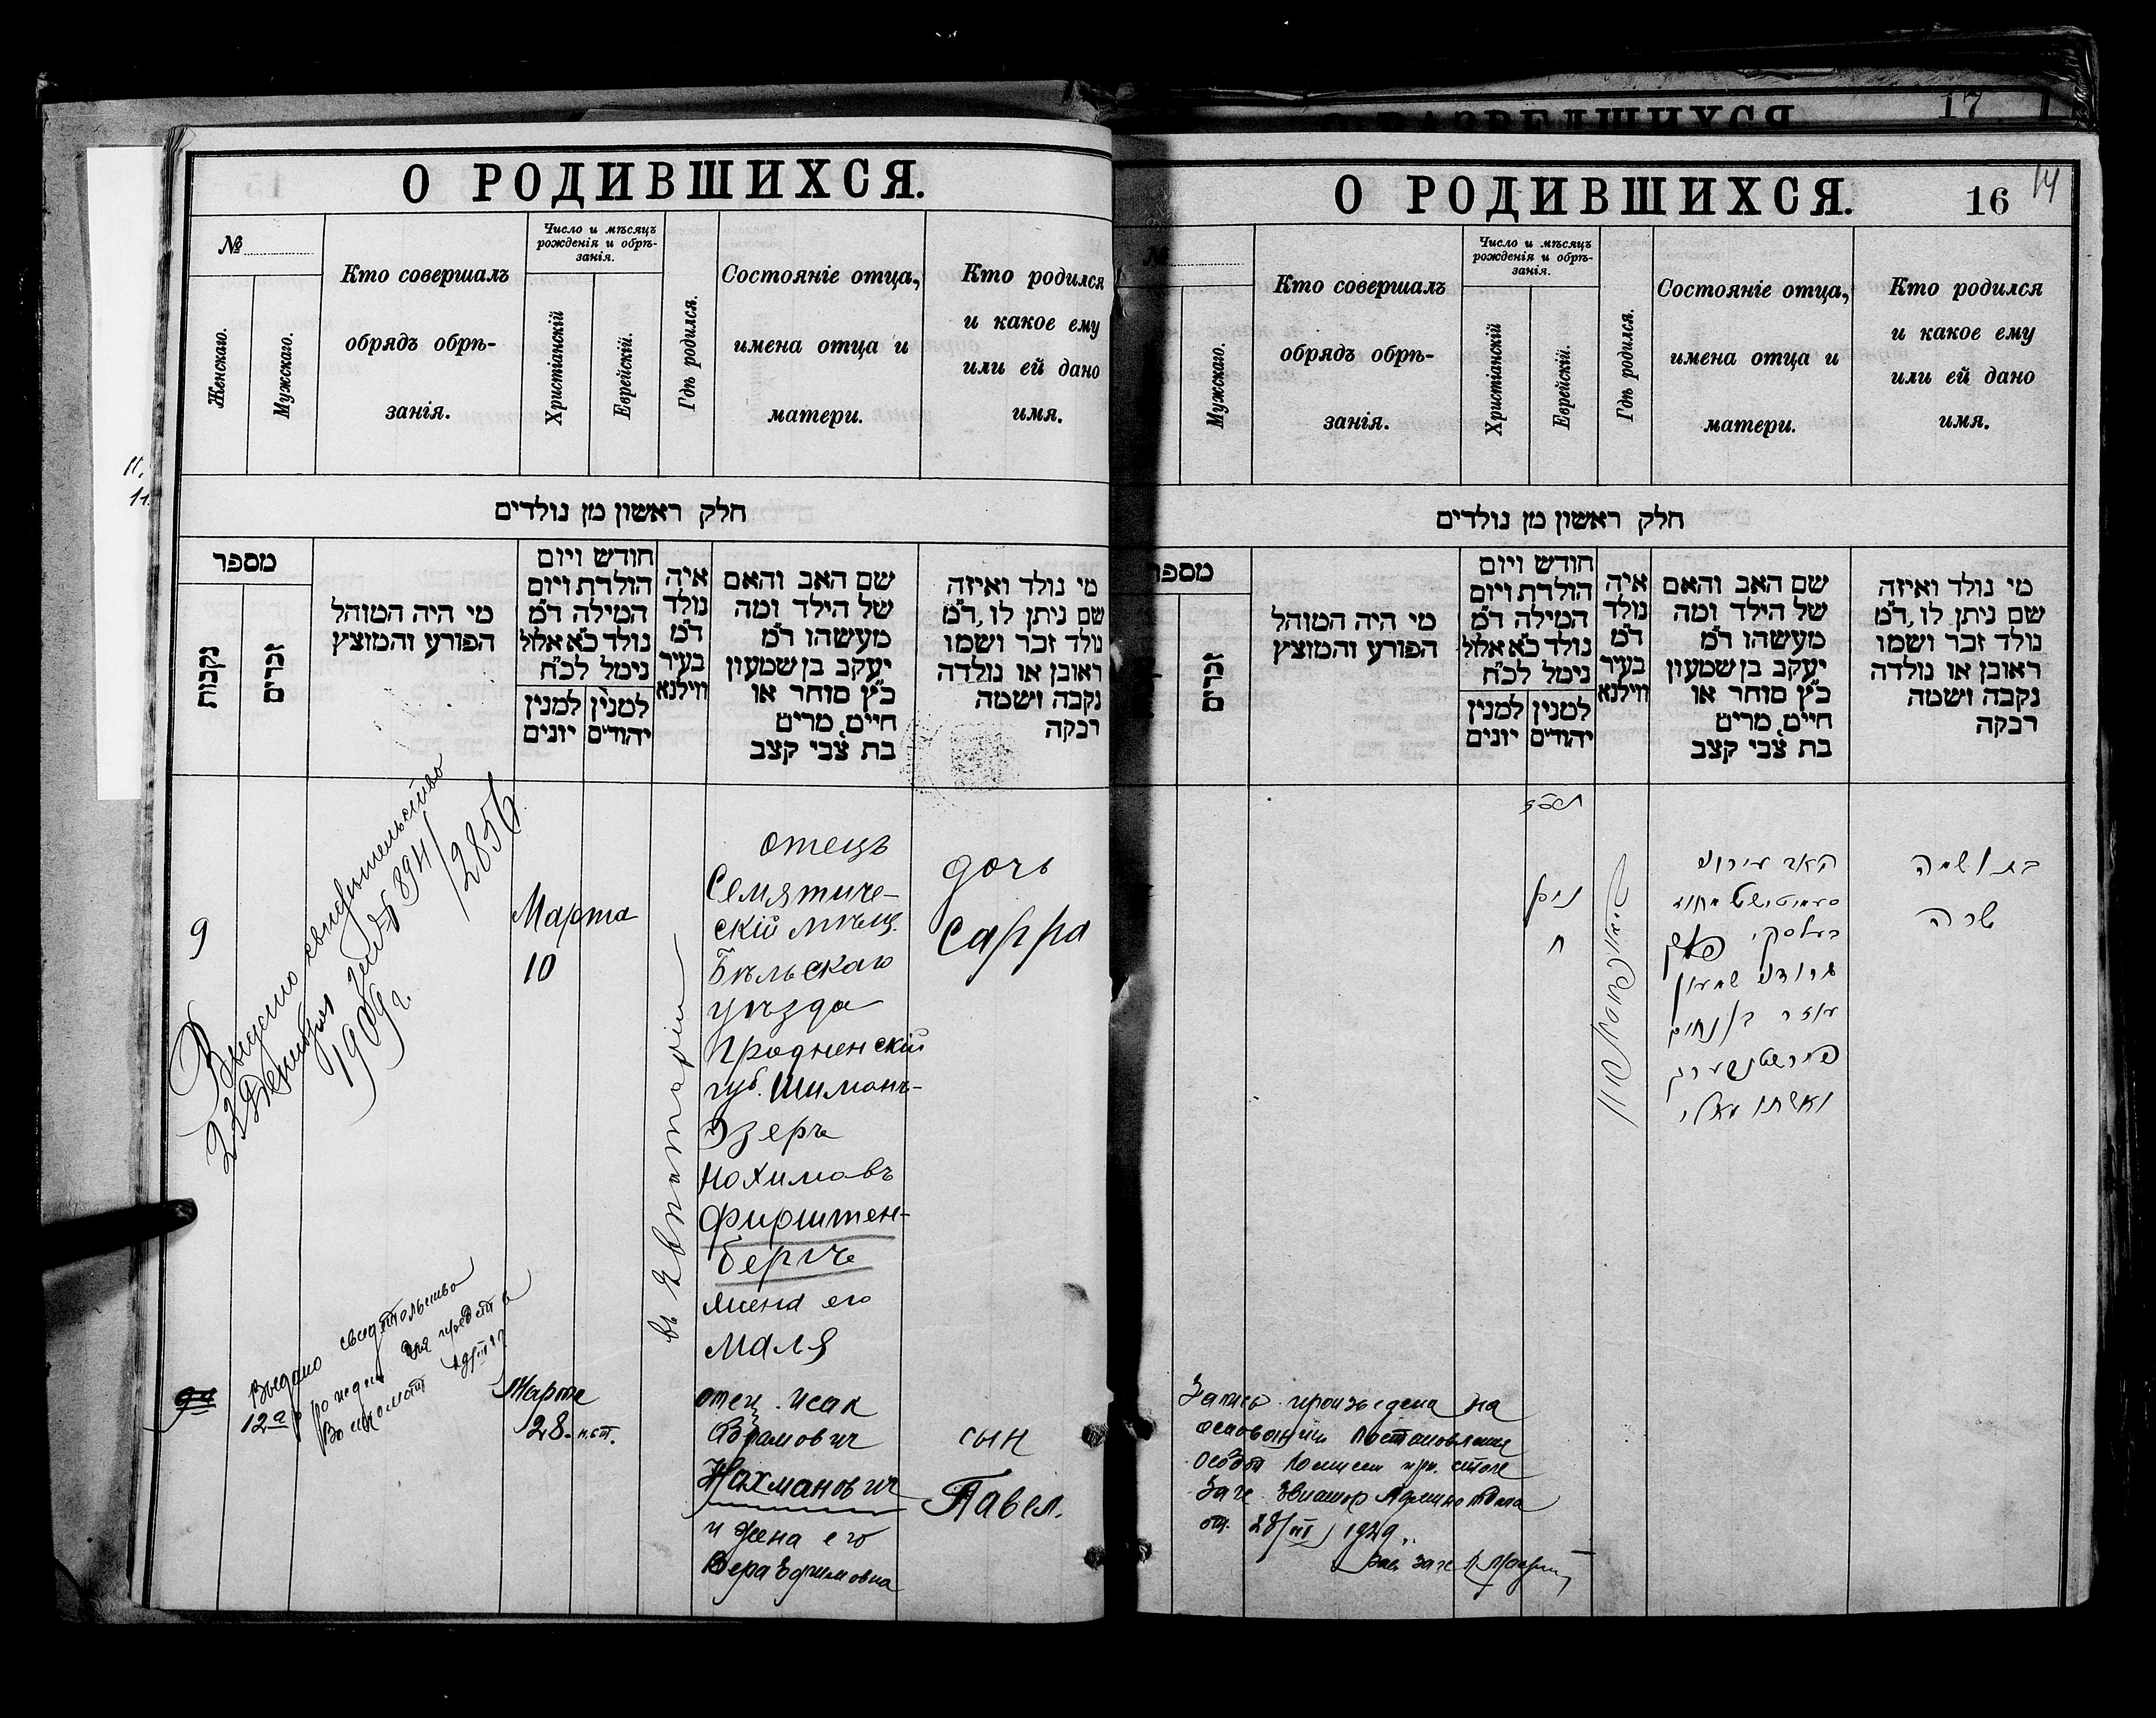 О РОДИВШИХСЯ.
№
Женскаго.
Мужскаго.
Кто совершалъ
обрядъ обрѣ-
занія.
Число и мѣсяцъ
рожденія и обрѣ-
занія.
Христіанскій
Еврейскій.
Гдѣ родился.
Состояніе отца,
имена отца и
матери.
Кто родился
и какое ему
или ей дано
имя.
חלק ראשון מן נולדים
מספר
נקבות
זכרים
מי היה המוהל
הפורע והמוצץ
חודש ויום
הולדת ויום
המילה ד״מ
נולד כ״א אלול
נימל לכ״ח
למנין
יונים
למנין
יהודים
איה
נולד
ד״מ
בעיר
ווילנא
שם האב והאם
של הילד ומה
מעשהו ד״מ
יעקב בן שמעון
כ״ץ סוחר או
חיים, מרים
בת צבי קצב
מי נולד ואיזה
שם ניתן לו, ד״מ
נולד זכר ושמו
ראובן או נולדה
נקבה ושמה
רבקה
9
Выдано свидѣтельство
22 Декабря за № 894
1909 г.
12856
Марта
10
въ Евпаторіи
отецъ
Семятиче-
скій мѣщ.
Бѣльскаго
уѣзда
Гродненскій
губ. Шимонъ-
Эзеръ
Нохимовъ
Фирштен-
бергъ
жена его
Маля
дочь
Сарра
9а
Выдано свидетельство
12
Марта
28. н.ст.
отец. Исак
Абрамович
Нахманович
и жена его
Вера Ефимовна
сын
Павел.
17
О РОДИВШИХСЯ.
16
14
№
Мужскаго.
Кто совершалъ
обрядъ обрѣ-
занія.
Число и мѣсяцъ
рожденія и обрѣ-
занія.
Христіанскій
Еврейскій.
Гдѣ родился.
Состояніе отца,
имена отца и
матери.
Кто родился
и какое ему
или ей дано
имя.
חלק ראשון מן נולדים
מספר
זכרים
מי היה המוהל
הפורע והמוצץ
חודש ויום
הולדת ויום
המילה ד״מ
נולד כ״א אלול
נימל לכ״ח
למנין
יונים
למנין
יהודים
איה
נולד
ד״מ
בעיר
ווילנא
שם האב והאם
של הילד ומה
מעשהו ד״מ
יעקב בן שמעון
כ״ץ סוחר או
חיים, מרים
בת צבי קצב
מי נולד ואיזה
שם ניתן לו, ד״מ
נולד זכר ושמו
ראובן או נולדה
נקבה ושמה
רבקה
ניסן
ח
האב
שמעון
עוזר בן נחום
פירשטנבערג
ואשתו מאלי
בת ושמה
שרה
Запись произведена на
основании постановления
Особой Комиссии при столе
Загс
от 28/III 1929.
Зав Загс